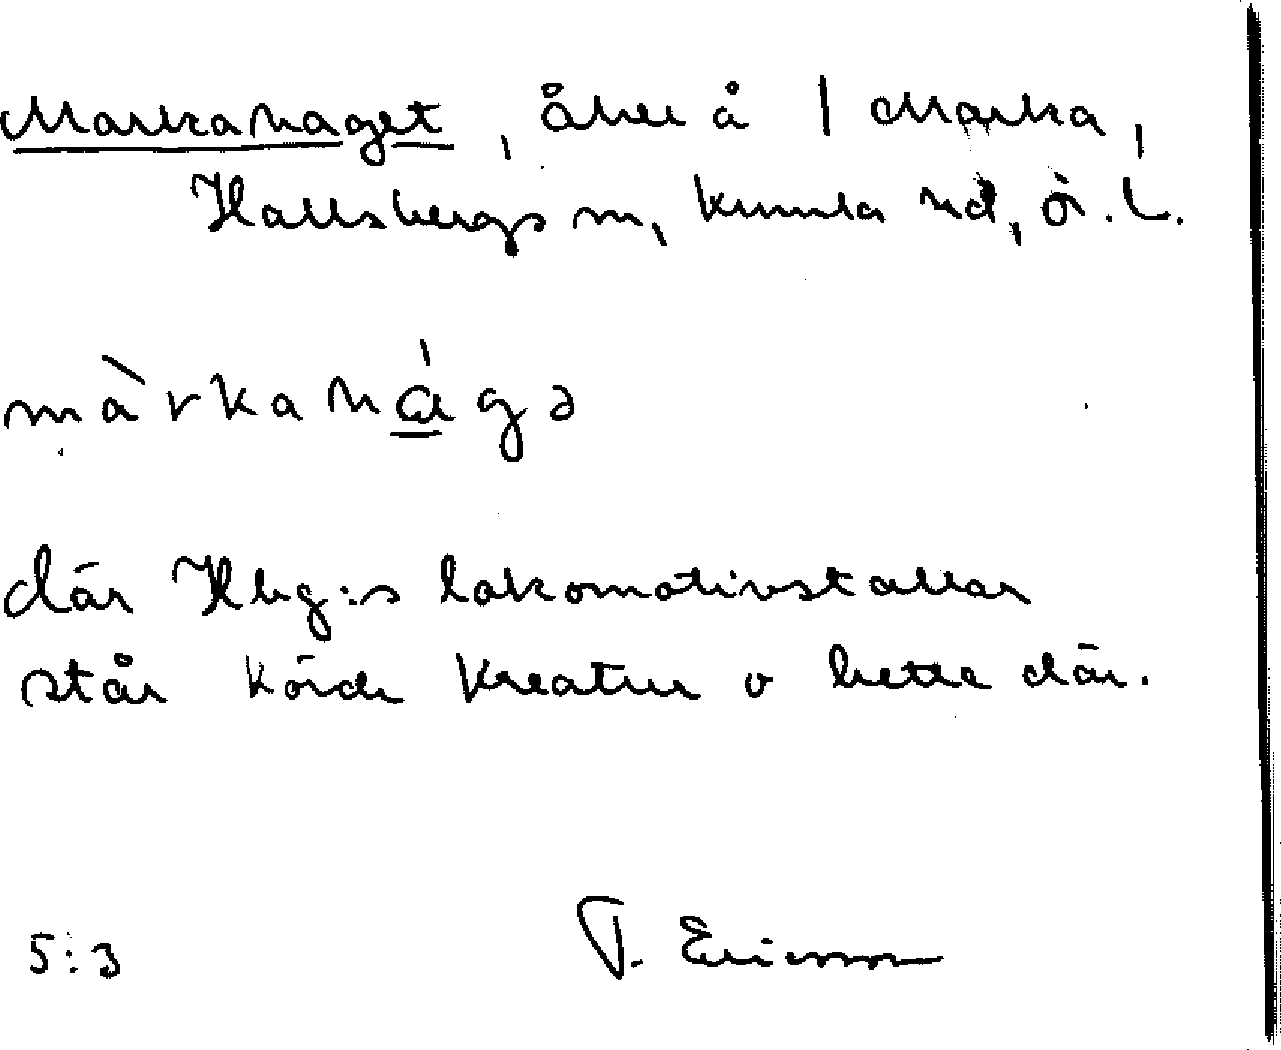 Markahaget, åker å 1 Marka,
Hallsbergs sn, Kumla hd, ör. l.
màrkahágə
där Hbg:s lokomotivstallar
står körde kreatur o betta där.
5:3 T. Ericsson